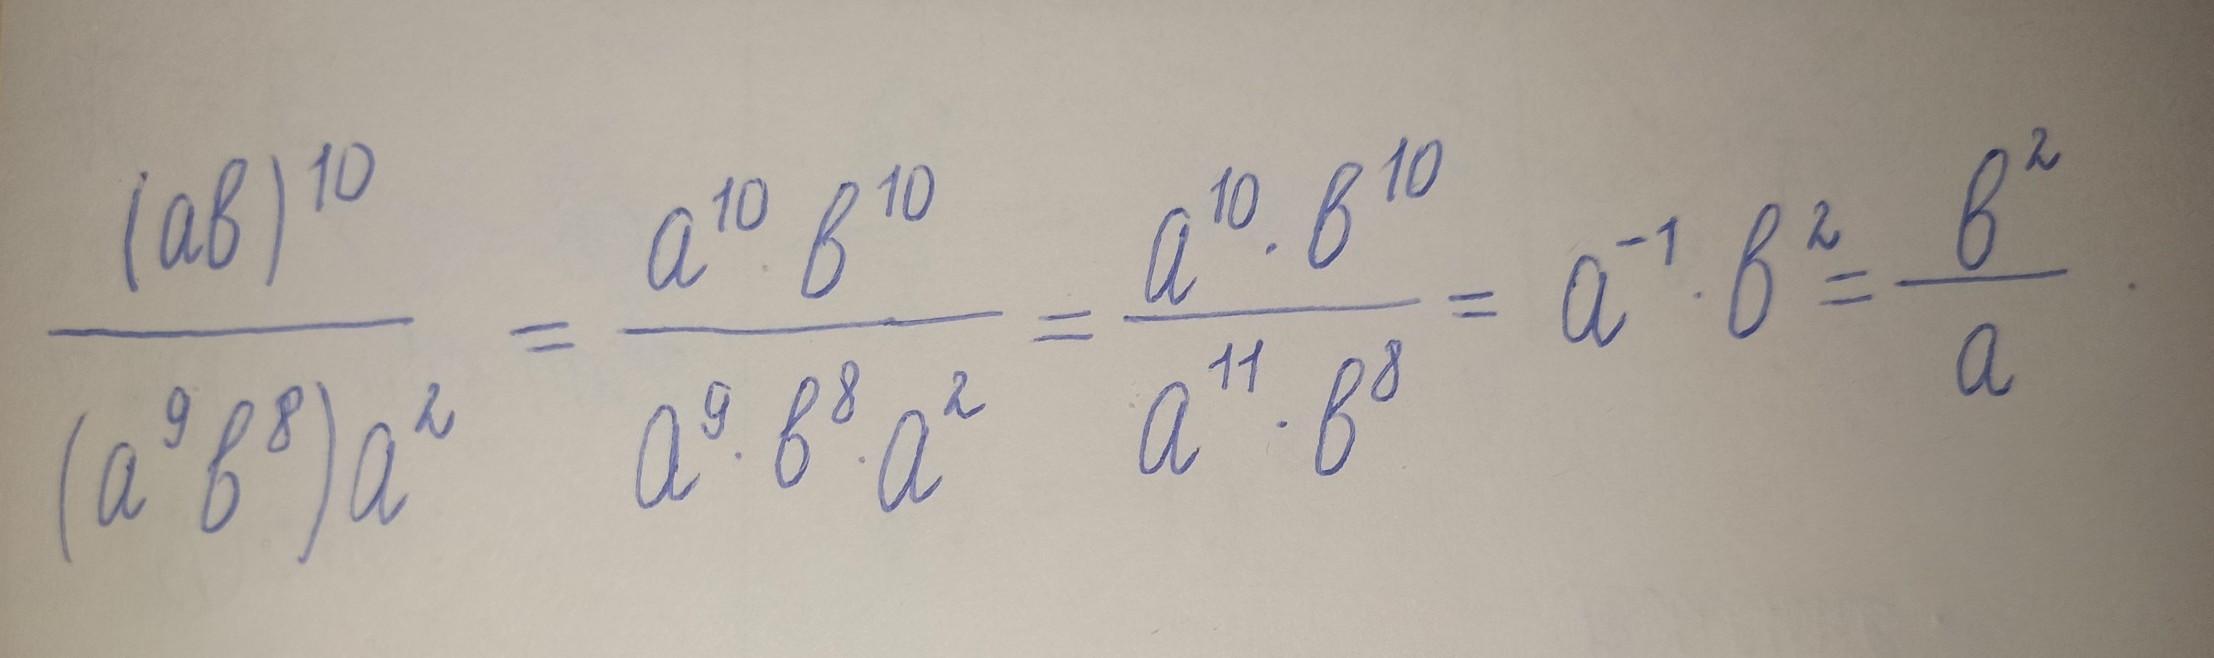 (aв)^10 / (a^9 в^8) a^2 = a^10 · в^10 / a^9 · в^8 · a^2 = a^10 · в^10 / a^11 · в^8 = a^-1 · в^2 = в^2 / a .